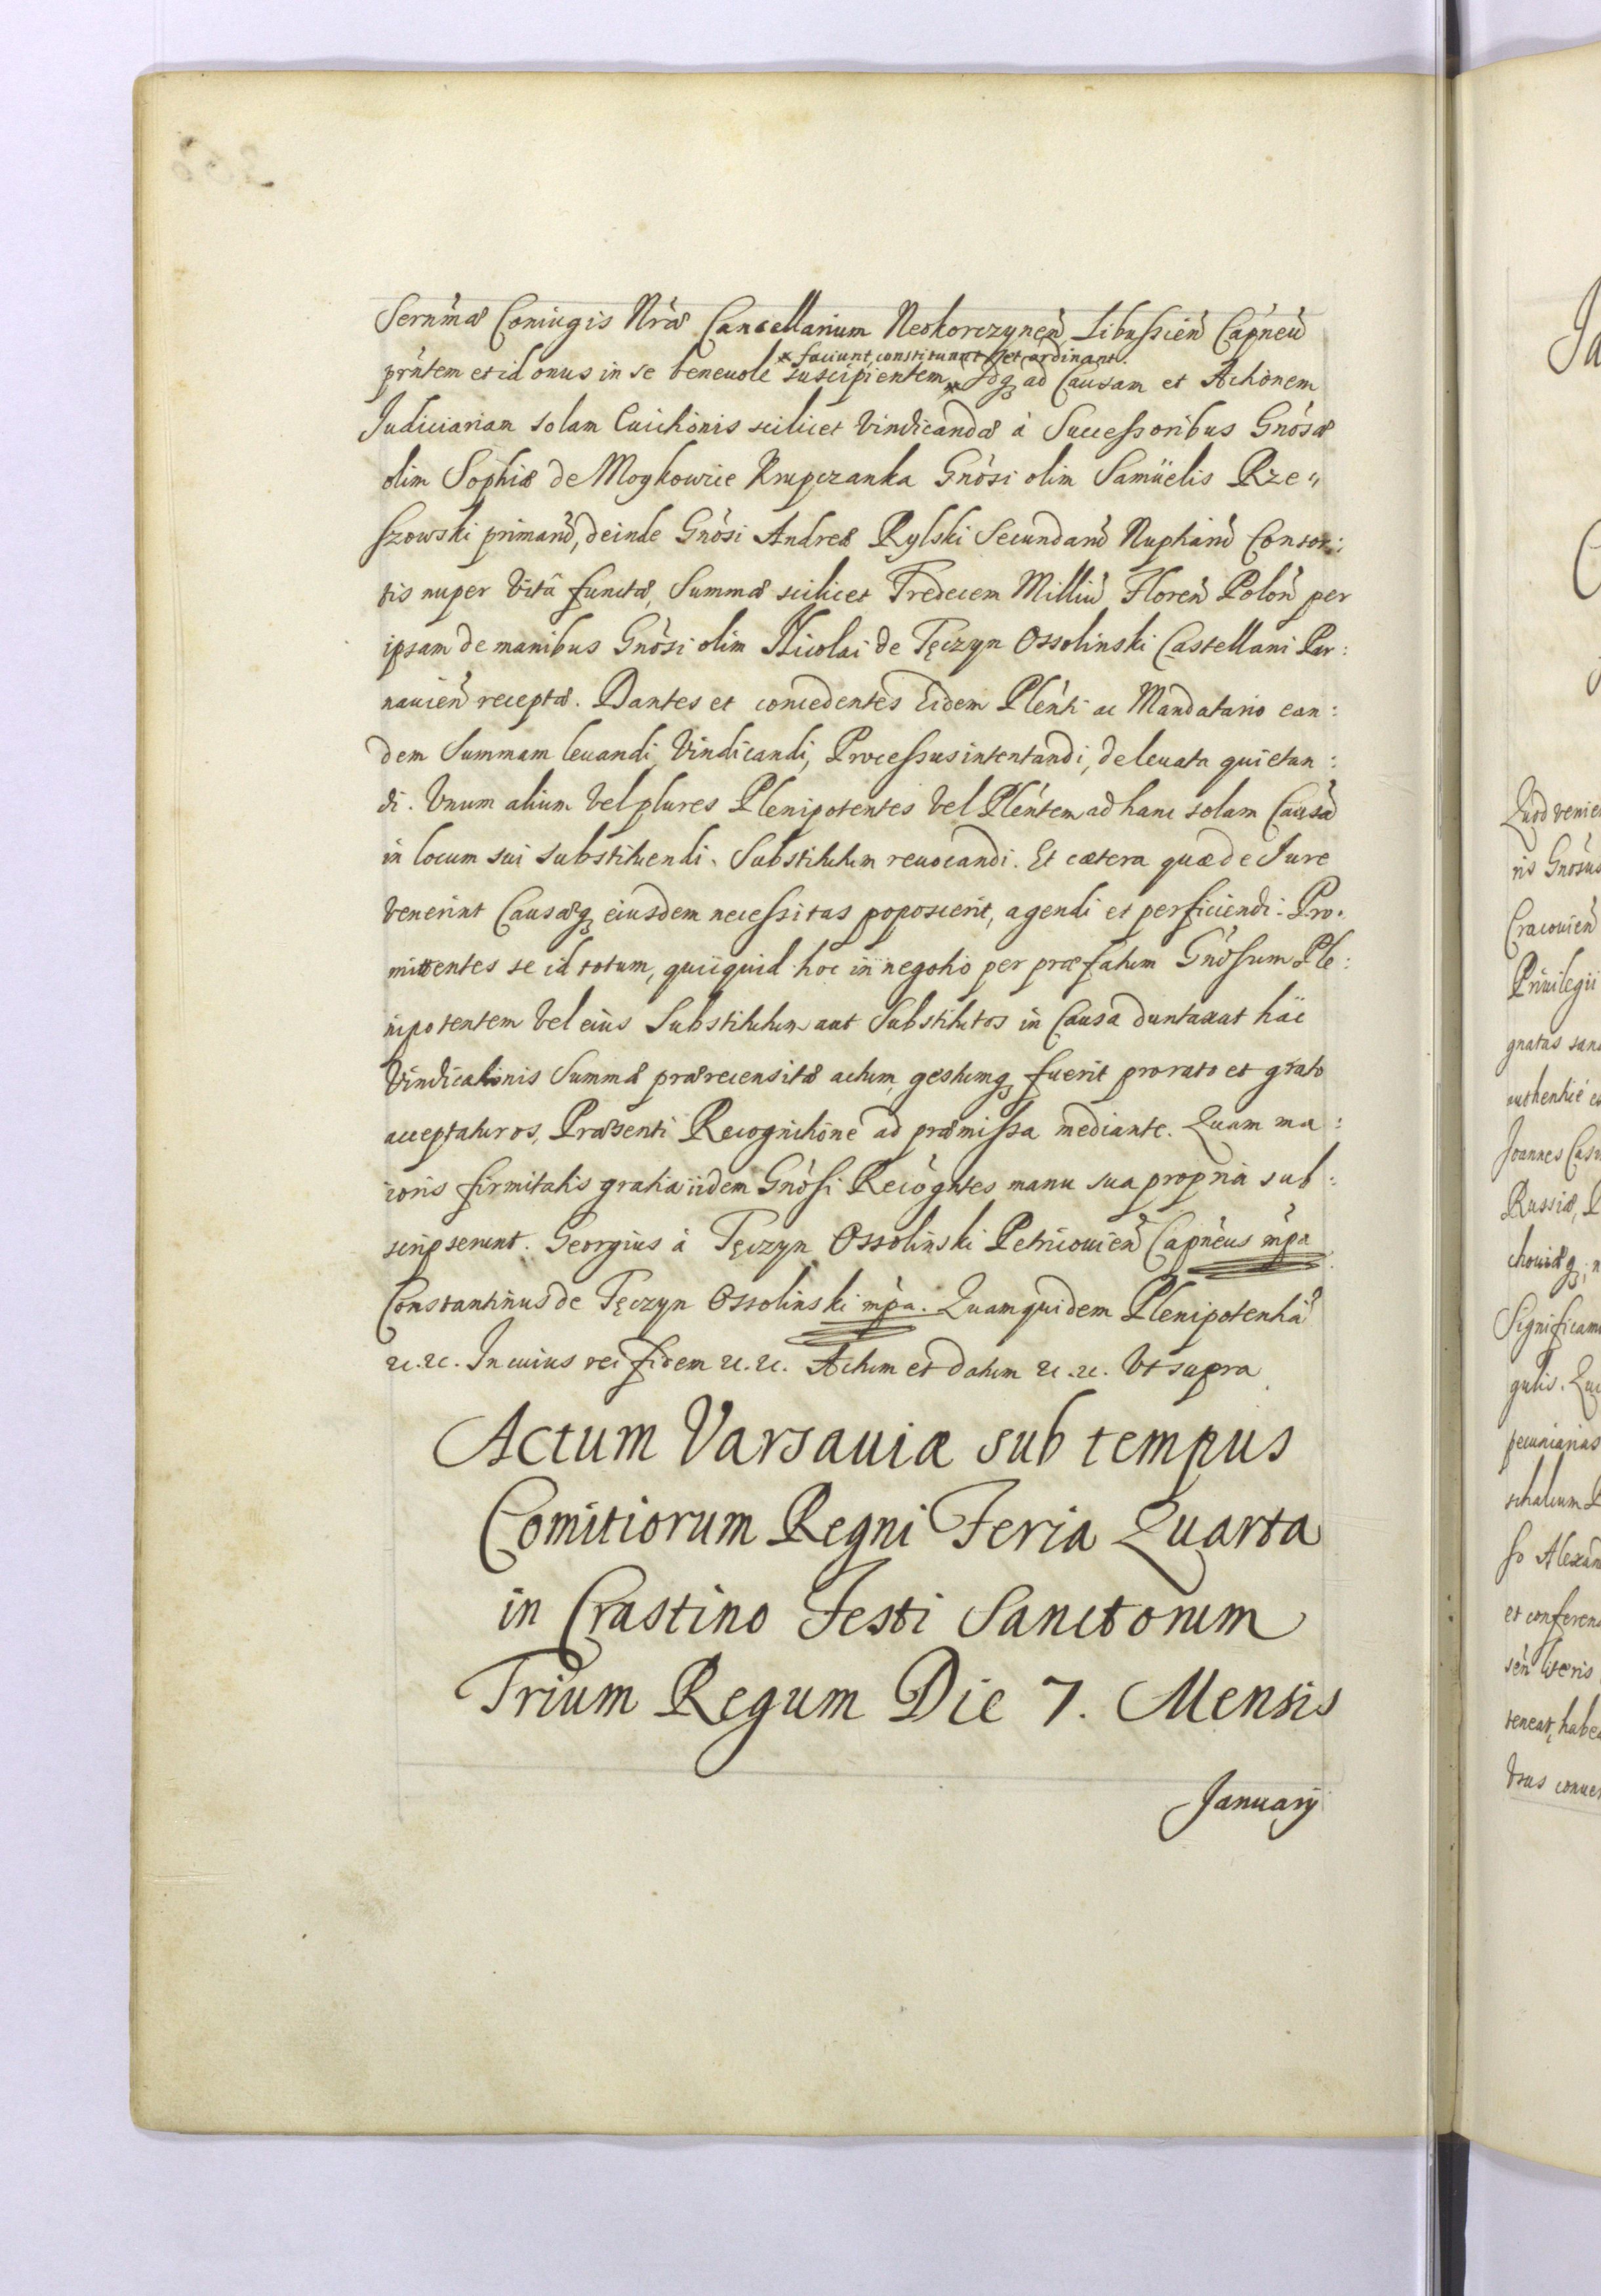 Sernmæ Coniugis Nræ Cancellarium Neokorczynen Libussien Capneu
* faciunt, constituunt et ordinant.
prntem et id onus in se beneuole suscipientem * Idq ad Causam et Actionem
Judiciariam solam Euictionis scilicet Vindicandæ à Successoribus Gnosæ
olim Sophiæ de Moykowice Krupczanka Gnosi olim Samüelis Rze„
szowski primarũ, deinde Gnosi Andreæ Rylski Secundarũ Nuptiarũ Consor:
tis nuper Vitâ functæ, Summæ scilicet Tredecem Milliũ Floren Polon per
ipsam de manibus Gnosi olim Nicolai de Tęczyn Ossolinski Castellani Par:
nauien receptæ. Dantes et concedentes Eidem Plenti ac Mandatario ean:
dem Summam leuandi, Vindicandi, Processus intentandi, de leuata quietan:
di. Vnum alium Vel plures Plenipotentes Vel Plentem ad hanc solam Causã
in locum sui substituendi. Substitutum reuocandi. Et cætera quæ de Jure
Venerint Causæq eiusdem necessitas poposcerit, agendi et perficiendi. Pro:
mittentes se id totum, quicquid hoc in negotio per præfatum Gnosum Ple:
nipotentem Vel eius Substitutum aut Substitutos in Causa duntaxat hac
Vindicationis Summæ prærecensitæ actum, gestumq fuerit pro rato et grato
accepturos, Præsenti Recognitione ad præmissa mediante. Quam ma:
ioris firmitatis gratia iidem Gnosi Recogntes manu sua propria sub:
scripserunt. Georgius à Tęczyn Ossolinski Petricouien Capneus mpa
Constantinus de Tęczyn Ossolinski mpa. Quamquidem Plenipotentiã
&c. &c. In cuius rei fidem &c. &c. Actum et datum &c. &c. Vt supra
Actum Varsauiæ sub tempus
Comitiorum Regni Feria Quarta
in Crastino Festi Sanctorum
Trium Regum Die 7. Mensis
Januarij